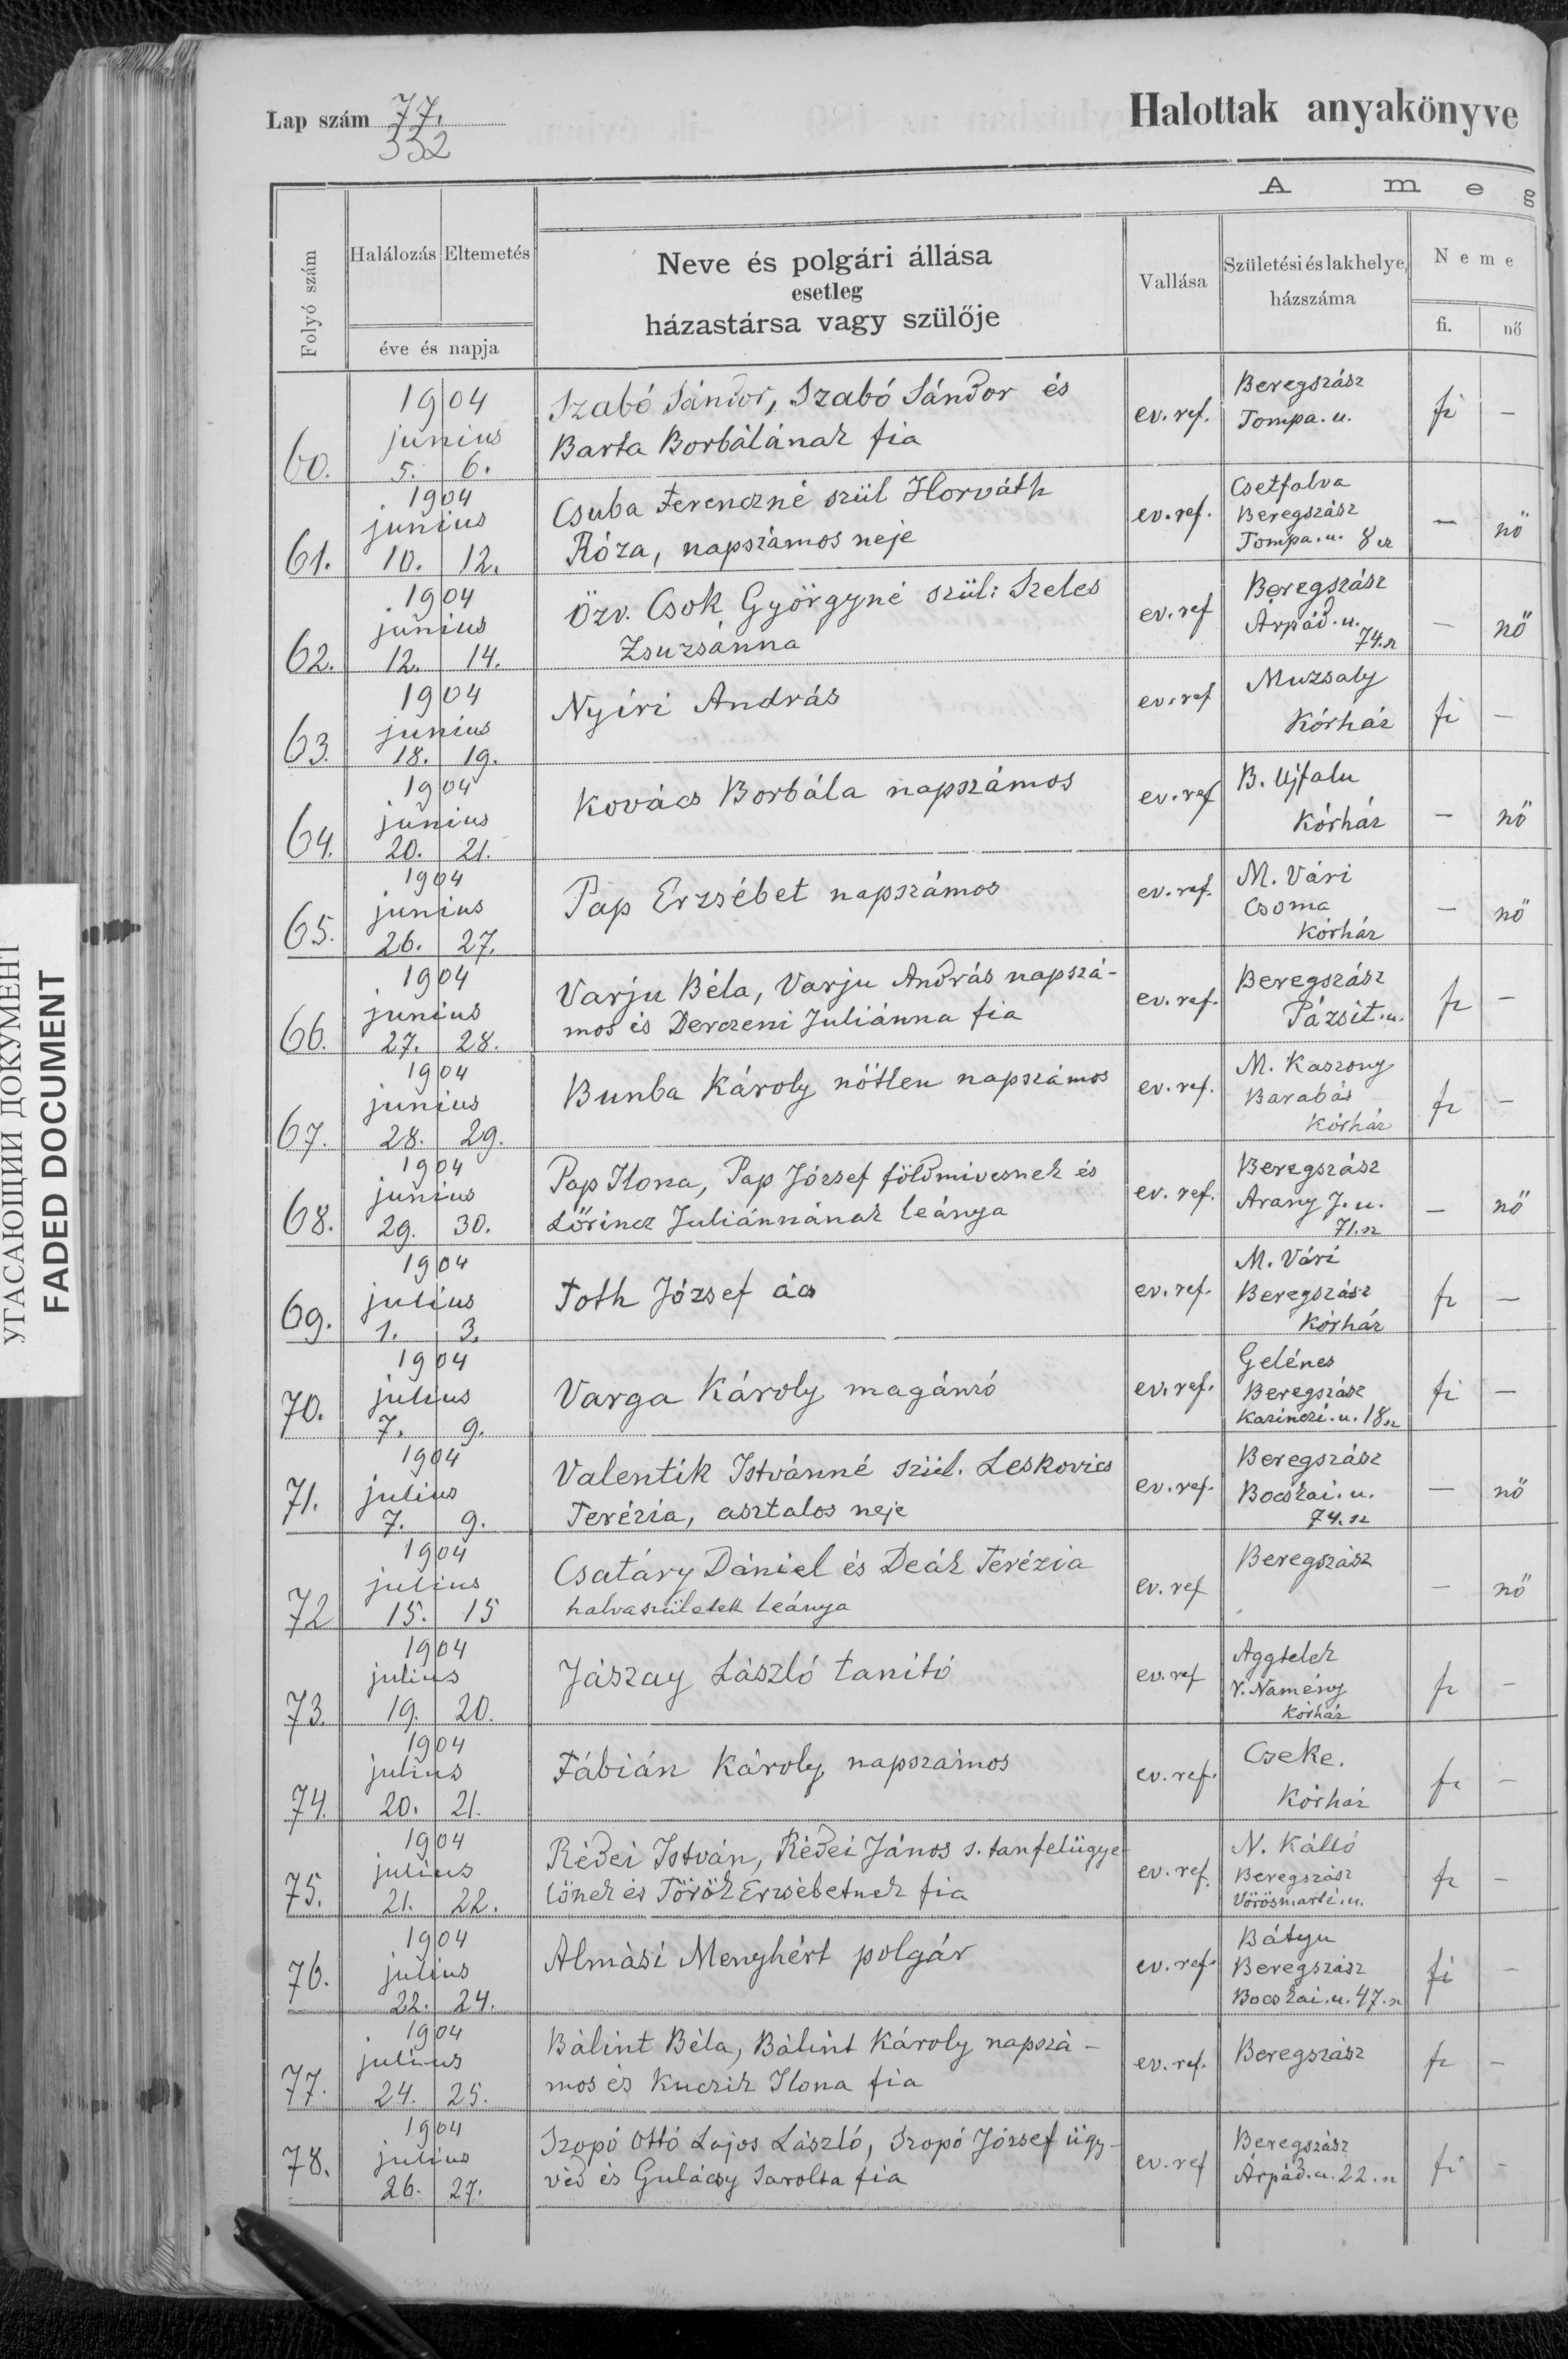 Lap szám 77.
332
Halottak anyakönyve
A m e g
Folyó szám
Halálozás Eltemetés
éve és napja
Neve és polgári állása
esetleg
házastársa vagy szülője
Vallása
Születési és lakhelye,
házszáma
Neme
fi. nő
60. 1904 junius 5. 6. Szabó Sándor, Szabó Sándor és
Barta Borbálának fia
ev. ref. Beregszász
Tompa. u.
fi –
61. 1904 junius 10. 12. Csuba Ferenczné szül Horváth
Róza, napszámos neje
ev. ref. Csetfalva
Beregszász
Tompa. u. 8 sz
– nő
62. 1904 junius 12. 14. Özv. Csok Györgyné szül: Szeles
Zsuzsánna
ev. ref Beregszász
Árpád. u.
74. sz
– nő
63. 1904 junius 18. 19. Nyíri András
ev. ref Muzsaly
Kórház
fi –
64. 1904 junius 20. 21. Kovács Borbála napszámos
ev. ref B. Ujfalu
Kórház
– nő
65. 1904 junius 26. 27. Pap Erzsébet napszámos
ev. ref. M. Vári
Csoma
Kórház
– nő
66. 1904 junius 27. 28. Varju Béla, Varju András napszá-
mos és Derczeni Juliánna fia
ev. ref. Beregszász
Pázsit. u.
fi –
67. 1904 junius 28. 29. Bunba Károly nőtlen napszámos
ev. ref. M. Kaszony
Barabás
Kórház
fi –
68. 1904 junius 29. 30. Pap Ilona, Pap József földmivesnek és
Lőrincz Juliánnának leánya
ev. ref. Beregszász
Arany J. u.
71. sz
– nő
69. 1904 julius 1. 3. Toth József ács
ev. ref. M. Vári
Beregszász
Kórház
fi –
70. 1904 julius 7. 9. Varga Károly magánzó
ev. ref. Gelénes
Beregszász
Kazinczi. u. 18 sz
fi –
71. 1904 julius 7. 9. Valentik Istvánné szül. Leskovics
Terézia, asztalos neje
ev. ref. Beregszász
Bocskai. u.
74. sz
– nő
72 1904 julius 15. 15 Csatáry Dániel és Deák Terézia
halvaszületett leánya
ev. ref Beregszász
– nő
73. 1904 julius 19. 20. Jászay László tanító
ev. ref Aggtelek
V. Namény
Kórház
fi –
74. 1904 julius 20. 21. Fábián Károly napszámos
ev. ref. Cseke.
Kórház
fi –
75. 1904 julius 21. 22. Rédei István, Rédei János s. tanfelügye-
lőnek és Török Erzsébetnek fia
ev. ref. N. Kálló
Beregszász
Vörösmarti. u.
fi –
76. 1904 julius 22. 24. Almási Menyhért polgár
ev. ref. Bátyu
Beregszász
Bocskai. u. 47. sz
fi –
77. 1904 julius 24. 25. Bálint Béla, Bálint Károly napszá-
mos és Kuczik Ilona fia
ev. ref. Beregszász
fi –
78. 1904 julius 26. 27. Szopó Ottó Lajos László, Szopó József ügy-
véd és Gulácsy Sarolta fia
ev. ref Beregszász
Árpád. u. 22. sz
fi –
УГАСАЮЩИЙ ДОКУМЕНТ
FADED DOCUMENT